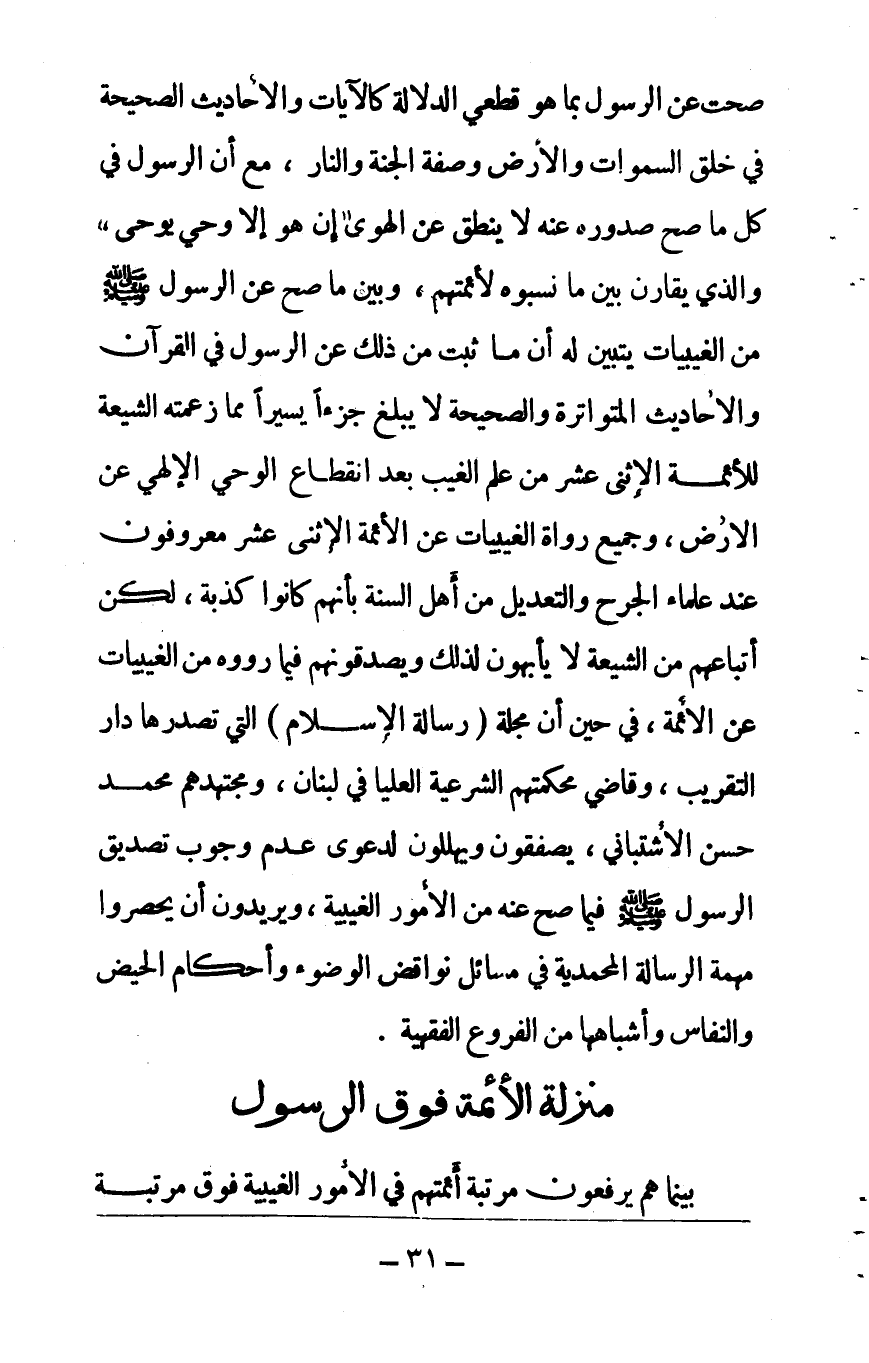 صحت عن الرسول بما هو قطعي الدلالة كالآيات والأحاديث الصحيحة
في خلق السموات والأرض وصفة الجنة والنار ، مع أن الرسول في
كل ما صح صدوره عنه لا ينطق عن الهوى "إن هو إلا وحي يوحى"
والذي يقارن بين ما نسبوه لأئمتهم ، وبين ما صح عن الرسول ﷺ
من الغيبيات يتبين له أن مـا ثبت من ذلك عن الرسول في القرآن
والأحاديث المتواترة والصحيحة لا يبلغ جزءاً يسيراً مما زعمته الشيعة
للأئمـــة الإثنى عشر من علم الغيب بعد انقطـاع الوحي الإلهي عن
الأرض ، وجميع رواة الغيبيات عن الأئمة الإثنى عشر معروفون
عند علماء الجرح والتعديل من أهل السنة بأنهم كانوا كذبة ، لكن
أتباعهم من الشيعة لا يأبهون لذلك ويصدقونهم فيما رووه من الغيبيات
عن الأئمة ، في حين أن مجلة ( رسالة الإســـلام ) التي تصدرها دار
التقريب ، وقاضي محكمتهم الشرعية العليا في لبنان ، ومجتهدهم محمـــد
حسن الأشتباني ، يصفقون ويهللون لدعوى عـدم وجوب تصديق
الرسول ﷺ فيما صح عنه من الأمور الغيبية ، ويريدون أن يحصروا
مهمة الرسالة المحمدية في مسائل نواقض الوضوء وأحكام الحيض
والنفاس وأشباهها من الفروع الفقهية .
منزلة الأئمة فوق الرسول
بينما هم يرفعون مرتبة أئمتهم في الأمور الغيبية فوق مرتبـــة
– ٣١ –